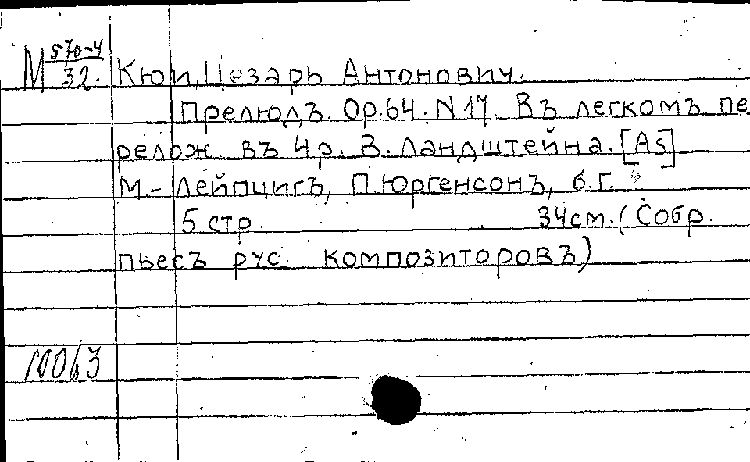 М 570-4
32. Кюи, Цезарь Антонович.
Прелюдъ. Op.64. N 17. Въ легкомъ пе
релож въ 4 р. В. Ландштейна. [As]
М.-Лейпцигъ, П. Юргенсонъ, б.г.
5 стр 34 см. (Собр.
пьесъ рус. композиторовъ)
10063